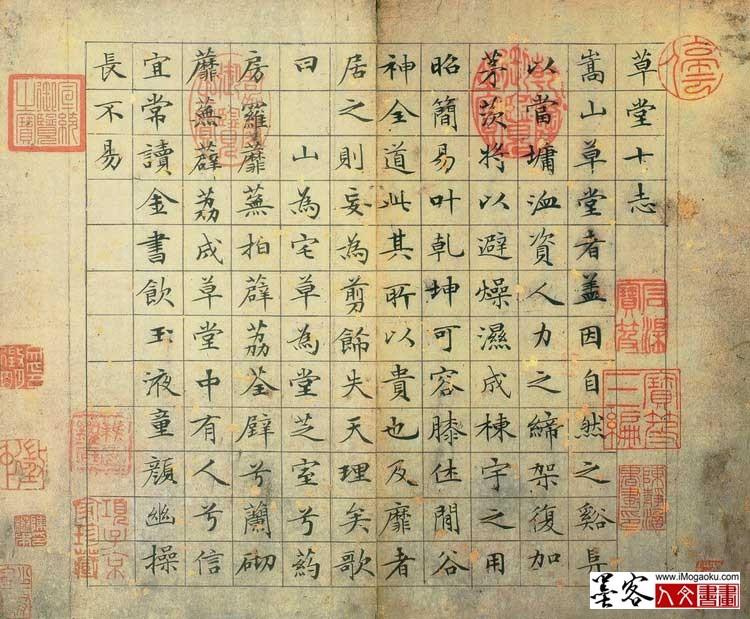 草堂十志
嵩山草堂者盖因自然之谿阜
以當墉洫資人力之締架復加
茅茨将以避燥濕成棟宇之用
昭簡易叶乾坤可容膝休閒谷
神全道此其所以貴也及靡者
居之則妄為剪飾失天理矣歌
曰山為宅草為堂芝室兮葯
房羅蘼蕪拍薜荔荃壁兮蘭砌
蘼蕪薜荔成草堂中有人兮信
宜常讀金書飲玉液童顏幽操
長不易
石渠寶笈
寶笈三編
宣統御覽之寶
項子京家珍藏
墨客
www.iMogaoku.com
人文書畫